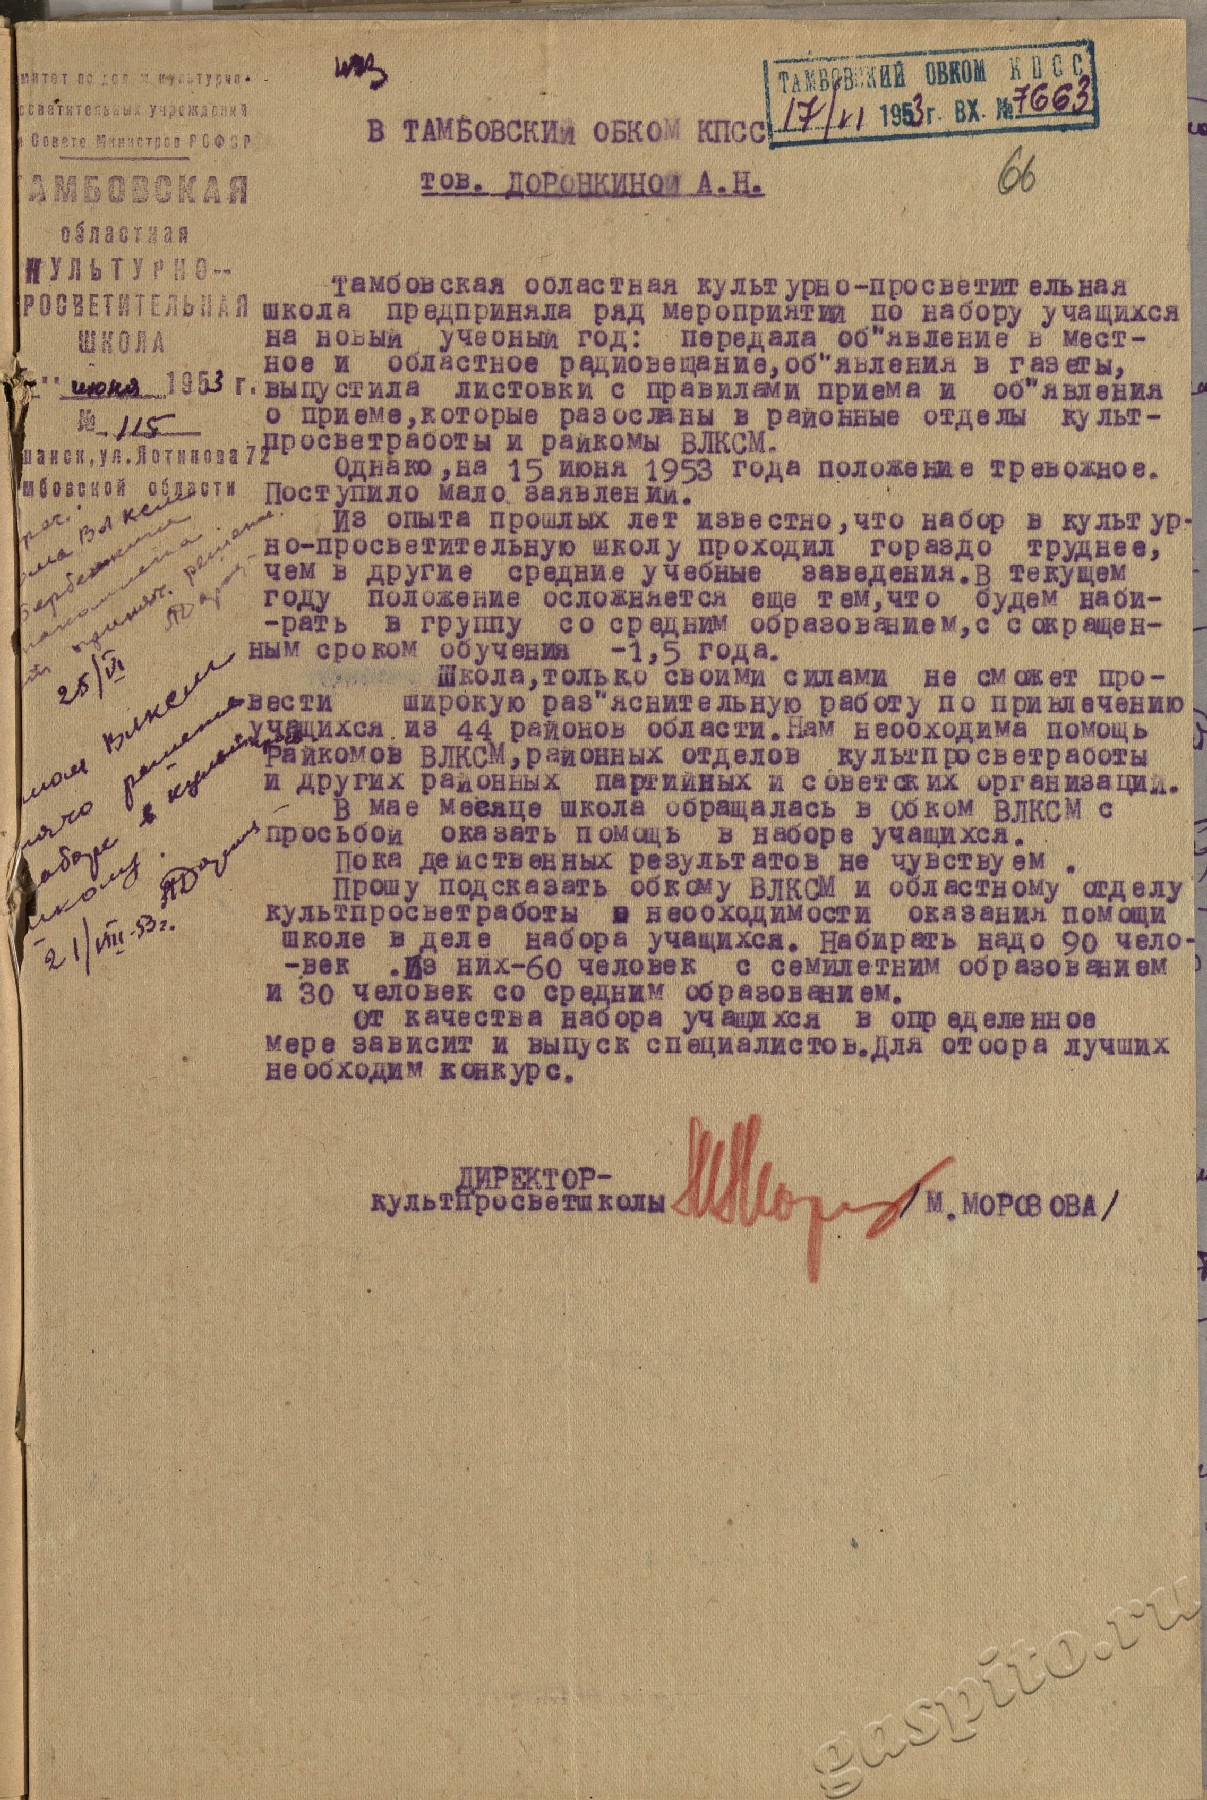 митет по дел м культурно-
осветительных учреждений
и Совете Министров РСФСР
ТАМБОВСКАЯ
областная
КУЛЬТУРНО--
РОСВЕТИТЕЛЬНАЯ
ШКОЛА
" июня 1953 г.
№ 115
шанск, ул. Лотикова 72
мбовской области
ТАМБОВСКИЙ ОБКОМ КПСС
17/VI 1953 г. ВХ. № 7663
66
В ТАМБОВСКИЙ ОБКОМ КПСС
тов. ДОРОНКИНОЙ А.Н.
Тамбовская областная культурно-просветительная
школа предприняла ряд мероприятий по набору учащихся
на новый учебный год: передала об"явление в мест-
ное и областное радиовещание, об"явления в газеты,
выпустила листовки с правилами приема и об"явления
о приеме, которые разосланы в районные отделы культ-
просветработы и райкомы ВЛКСМ.
Однако, на 15 июня 1953 года положение тревожное.
Поступило мало заявлений.
Из опыта прошлых лет известно, что набор в культур-
но-просветительную школу проходил гораздо труднее,
чем в другие средние учебные заведения. В текущем
году положение осложняется еще тем, что будем наби-
-рать в группу со средним образованием, с сокращен-
ным сроком обучения -1,5 года.
Школа, только своими силами не сможет про-
вести широкую раз"яснительную работу по привлечению
учащихся из 44 районов области. Нам необходима помощь
Райкомов ВЛКСМ, районных отделов культпросветработы
и других районных партийных и советских организаций.
В мае месяце школа обращалась в Обком ВЛКСМ с
просьбой оказать помощь в наборе учащихся.
Пока действенных результатов не чувствуем .
Прошу подсказать обкому ВЛКСМ и областному отделу
культпросветработы о необходимости оказания помощи
школе в деле набора учащихся. Набирать надо 90 чело-
-век .Из них-60 человек с семилетним образованием
и 30 человек со средним образованием.
От качества набора учащихся в определенное
мере зависит и выпуск специалистов. Для отбора лучших
необходим конкурс.
ДИРЕКТОР-
культпросветшколы /М. МОРОЗОВА/
ВЛКСМ
принят. решение.
25/VI
ВЛКСМ
решение
наборе в культпросв
школу.
21/VIII-53г.
gaspito.ru